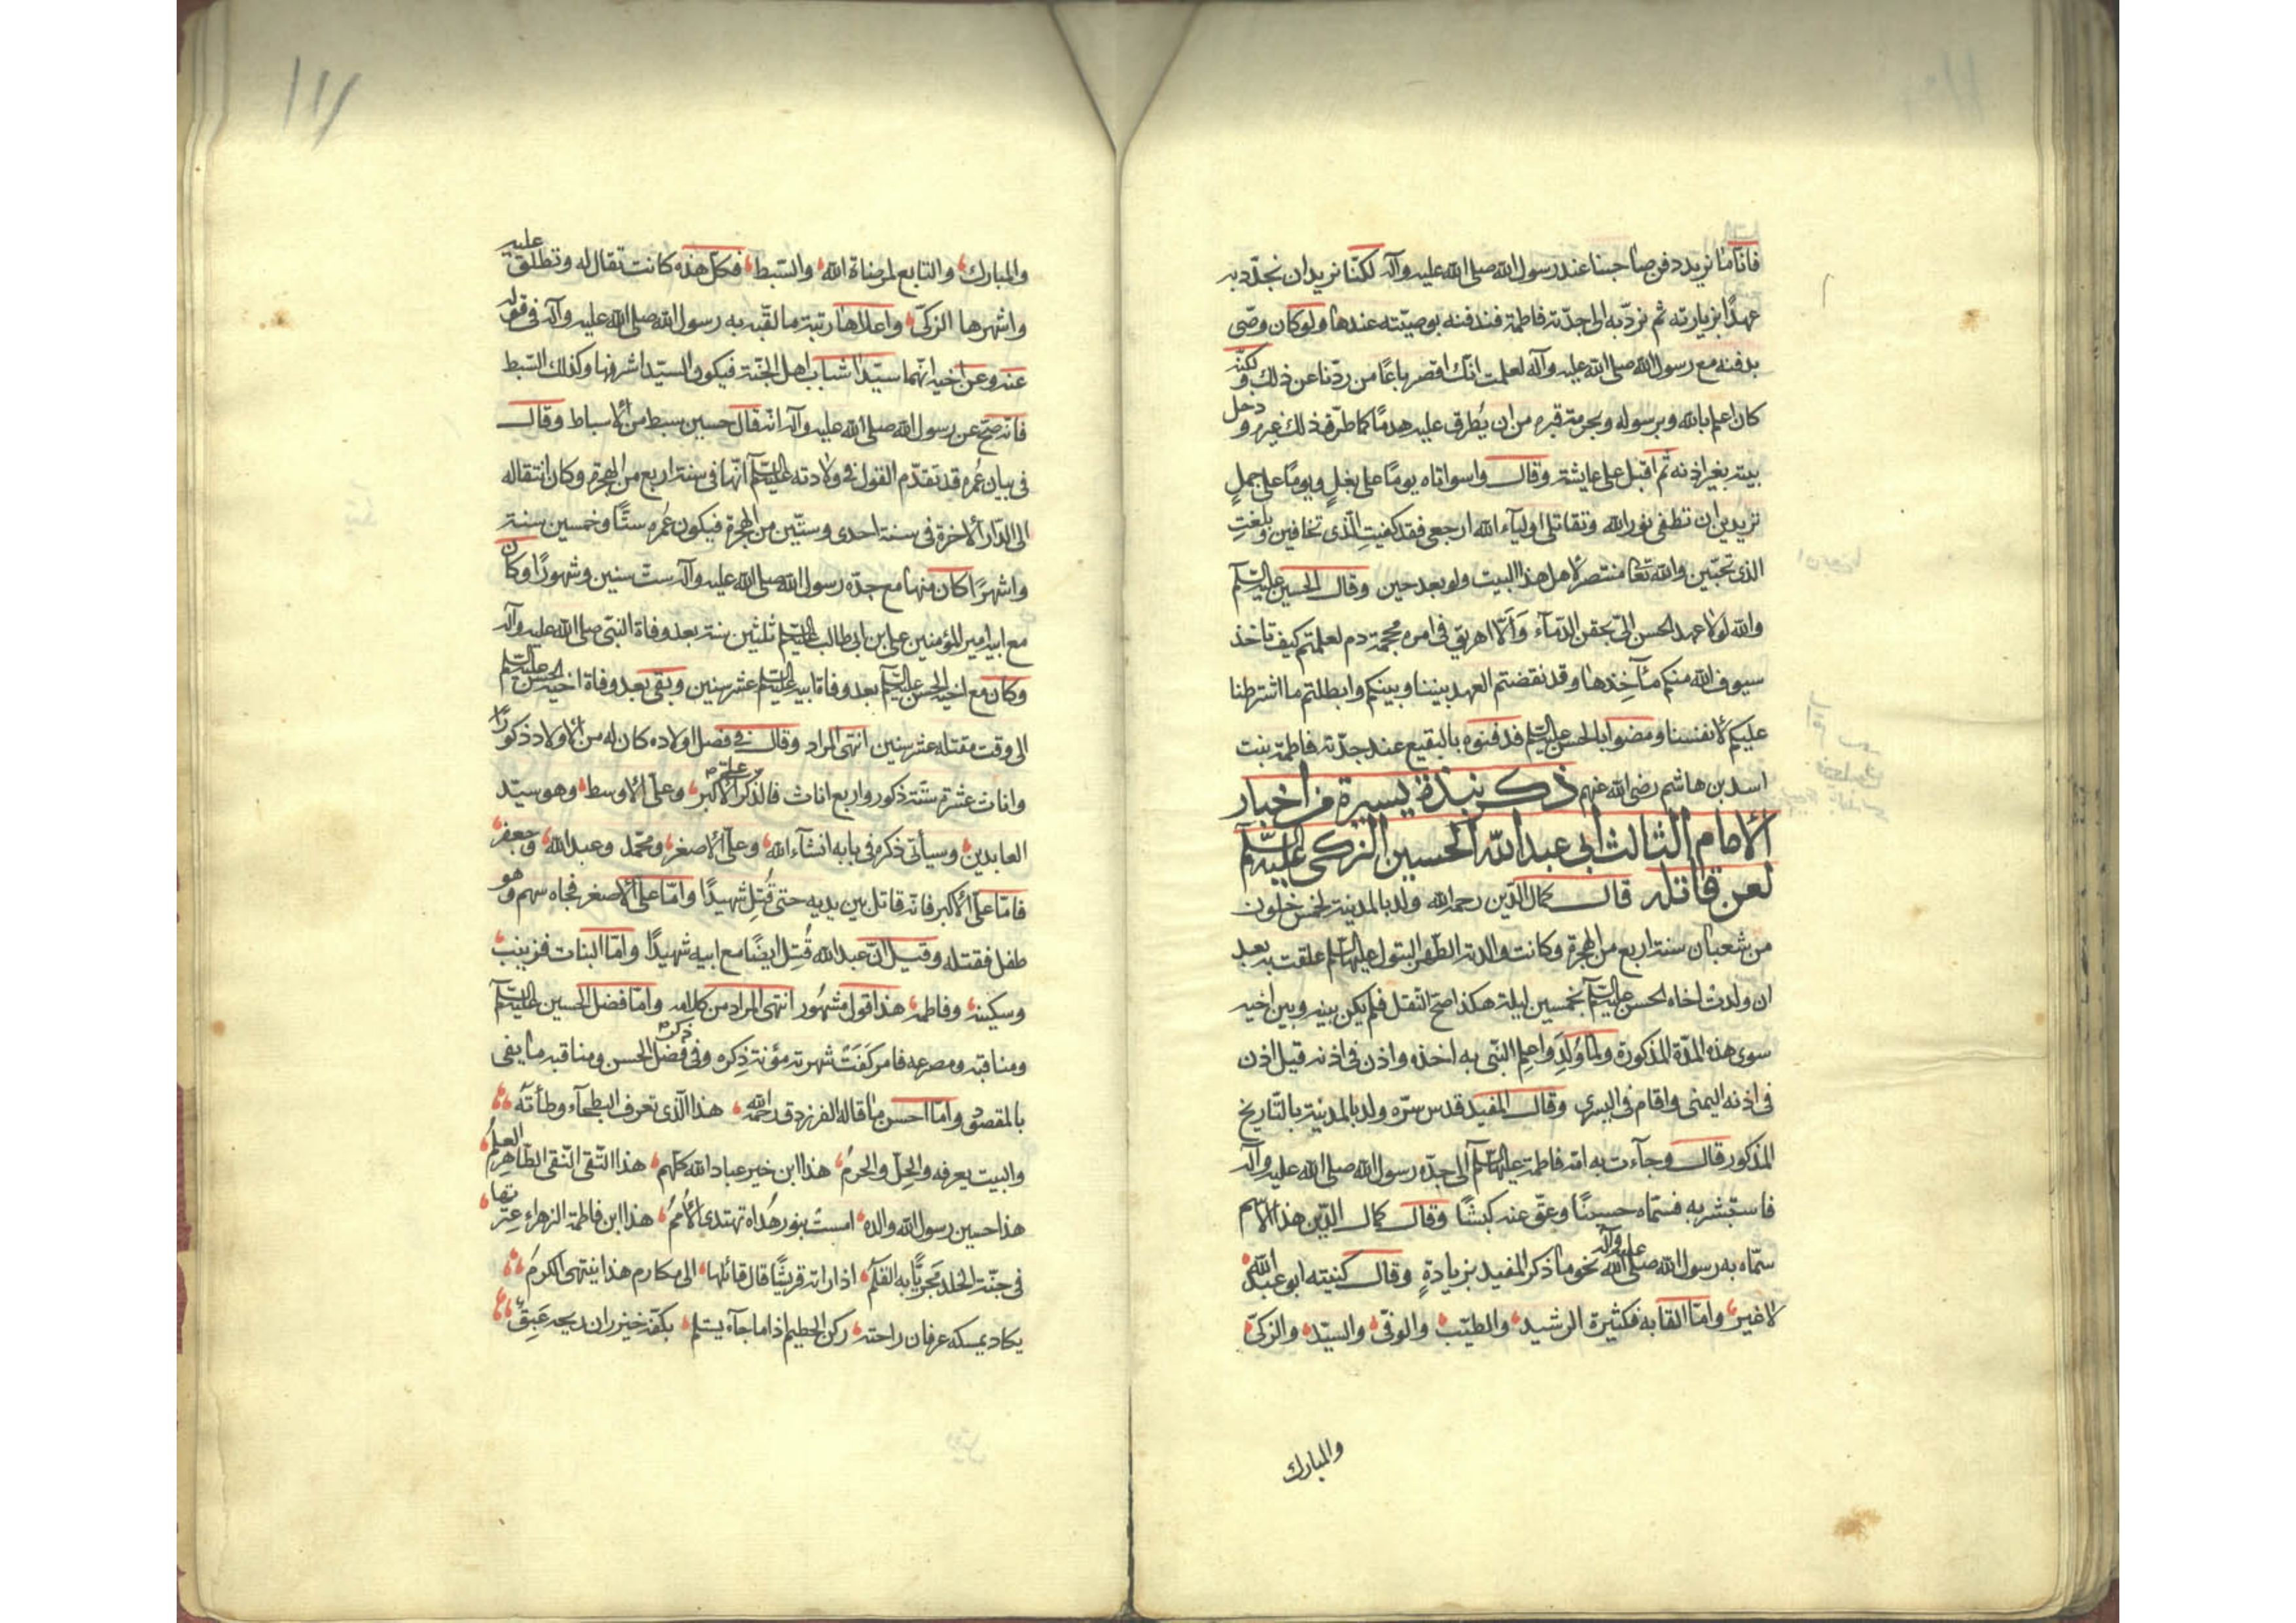 فانّا ما نريد دفن صاحبنا عند رسول الله صلى الله عليه وآله لكنّا نريد ان نجدّد به
عهدًا بزيارته ثم نردّ به الى جدّته فاطمة فندفنه بوصيّته عندها ولو كان وصّى
بدفنه مع رسول الله صلى الله عليه وآله لعلمت انّك اقصر باعًا من ردّنا عن ذلك ولكنّه
كان اعلم بالله وبرسوله وبحرمة قبره من ان يُطرق عليه هدمًا كما طرّق ذلك غيره ودخل
بيته بغير اذنه ثم اقبل على عايشة وقال واسواتاه يومًا على بغلٍ ويومًا على جملٍ
تريدين ان تطفى نور الله وتقاتلى اوليآء الله ارجعى فقد كفيتِ الّذى تخافين وبلغتِ
الذى تحبّين والله تعا منتصر لاهل هذا البيت ولو بعد حين وقال الحسين عليه السلم
والله لولا عهد الحسن الىّ بحقن الدّمآء وَاَلّا اهريق فى امره محجمة دم لعلمتم كيف تاخذ
سيوف الله منكم مآخِذها وقد نقضتم العهد بيننا وبينكم وابطلتم ما اشترطنا
عليكم لانفسنا ومضوا بالحسن عليه السلم فدفنوه بالبقيع عند جدّته فاطمة بنت
اسد بن هاشم رضى الله عنهم ذكر نبذة يسيرة من اخبار
الامام الثالث ابى عبد الله الحسين الزكى عليه السلم
لعن قاتله قال كمال الدّين رحمه الله ولد بالمدينة لخمس خلون
من شعبان سنة اربع من الهجرة وكانت والدته الطّهر البتول عليها السلم علقت به بعد
ان ولدت اخاه الحسن عليه السلم بخمسين ليلة هكذا صحّ النّقل فلم يكن بينه وبين اخيه
سوى هذه المدّة المذكورة ولمّا وُلِدَ واعلم النّبى به اخذه واذن فى اذنه قيل اذن
فى اذنه اليمنى واقام فى اليسرى وقال المفيد قدس سرّه ولد بالمدينة بالتّاريخ
المذكور قال وجآءت به امّه فاطمة عليها السلم الى جدّه رسول الله صلى الله عليه وآله
فاستبشر به فسمّاه حسينًا وعقّ عنه كبشًا وقال كمال الدّين هذا الاسم
سمّاه به رسول الله صلى الله عليه وآله نحو ما ذكر المفيد بزيادةٍ وقال كنيته ابو عبد الله
لا غير وامّا القابه فكثيرة الرشيد والطيّب والوفىّ والسيّد والزكىّ
والمبارك
١١١
والمبارك والتابع لمرضاة الله والسّبط فكلّ هذه كانت تقال له وتطلق عليه
واشهرها الزكىّ واعلاها رتبة ما لقّبه به رسول الله صلى الله عليه وآله فى قوله
عنه وعن اخيه انّهما سيّدا شباب اهل الجنّة فيكون السيّد اشرفها وكذلك السّبط
فانّه صحّ عن رسول الله صلى الله عليه وآله انّه قال حسين سبط من الاسباط وقال
فى بيان عُمره قد تقدّم القول فى ولادته عليه السلم انّها فى سنة اربع من الهجرة وكان انتقاله
الى الدّار الاخرة فى سنة احدى وستّين من الهجرة فيكون عُمره ستًّا وخمسين سنة
واشهرًا كان منها مع جدّه رسول الله صلى الله عليه وآله ستّ سنين وشهورًا وكان
مع ابيه امير المؤمنين على بن ابى طالب عليه السلم ثلثين سنة بعد وفاة النبّى صلى الله عليه وآله
وكان مع اخيه الحسن عليه السلم بعد وفاة ابيه عليه السلم عشر سنين وبقى بعد وفاة اخيه الحسن عليه السلم
الى وقت مقتله عشر سنين انتهى المراد وقال فى فصل اولاده كان له من الاولاد ذكورًا
واناث عشرة ستّة ذكور واربع اناث فالذكر علىّ الاكبر وعلىّ الاوسط وهو سيّد
العابدين وسيأتى ذكره فى بابه انشآء الله وعلىّ الاصغر ومحمّد وعبد الله وجعفر
فامّا علىّ الاكبر فانّه قاتل بين يديه حتى قُتِل شهيدًا وامّا علىّ الاصغر فجاه سهم وهو
طفل فقتله وقيل انّ عبد الله قُتِل ايضًا مع ابيه شهيدًا وامّا البنات فزينب
وسكينة وفاطمة هذا قول مشهُور انتهى المراد من كلامه وامّا فضل الحسين عليه السلم
ومناقبه ومصرعه فامر كَفَتْ شهرته مؤنة ذِكره وفى ذكر فضل الحسن ومناقبه ما يفى
بالمقصود وامّا احسن ما قاله الفرزدق رحمه الله هذا الّذى تعرف البطحآء وطأته
والبيت يعرفه والحِلّ والحرمُ هذا ابن خير عباد الله كلّهم هذا التّقى النّقى الطّاهر العلمُ
هذا حسين رسول الله والده امست بنور هُداه تهتدى الاُممُ هذا ابن فاطمة الزهراء عترتها
فى جنّة الخلد مَجريًّا به القلمُ اذا راته قريشًا قال قائلها الى مكارم هذا ينتهى الكرمُ
يكاد يمسكه عرفان راحته ركن الحطيم اذا ما جآء يستلم بكفّه خيزران ريحه عَبِقٌ